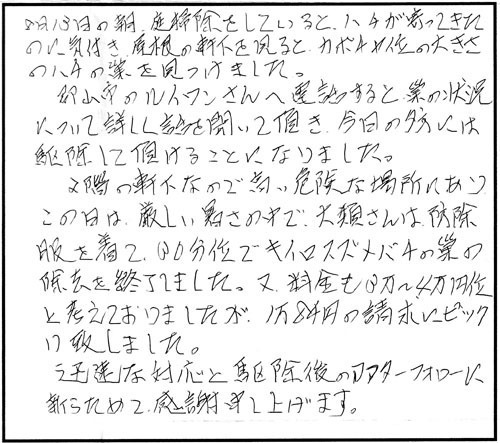 8月13日の朝、庭掃除をしていると、ハチが寄ってきた
のに気付き、屋根の軒下を見ると、カボチャ位の大きさ
のハチの巣を見つけました。
郡山市のルイワンさんへ電話すると、巣の状況
について詳しく話を聞いて頂き、今日の夕方には
駆除して頂けることになりました。
2階の軒下なので高い危険な場所にあり
この日は、厳しい暑さの中で、大類さんは、防除
服を着て、30分位でキイロスズメバチの巣の
除去を終了しました。又、料金も3万～4万円位
と考えておりましたが、1万8千円の請求にビック
リ致しました。
迅速な対応と駆除後のアフターフォローに
新らためて、感謝申し上げます。